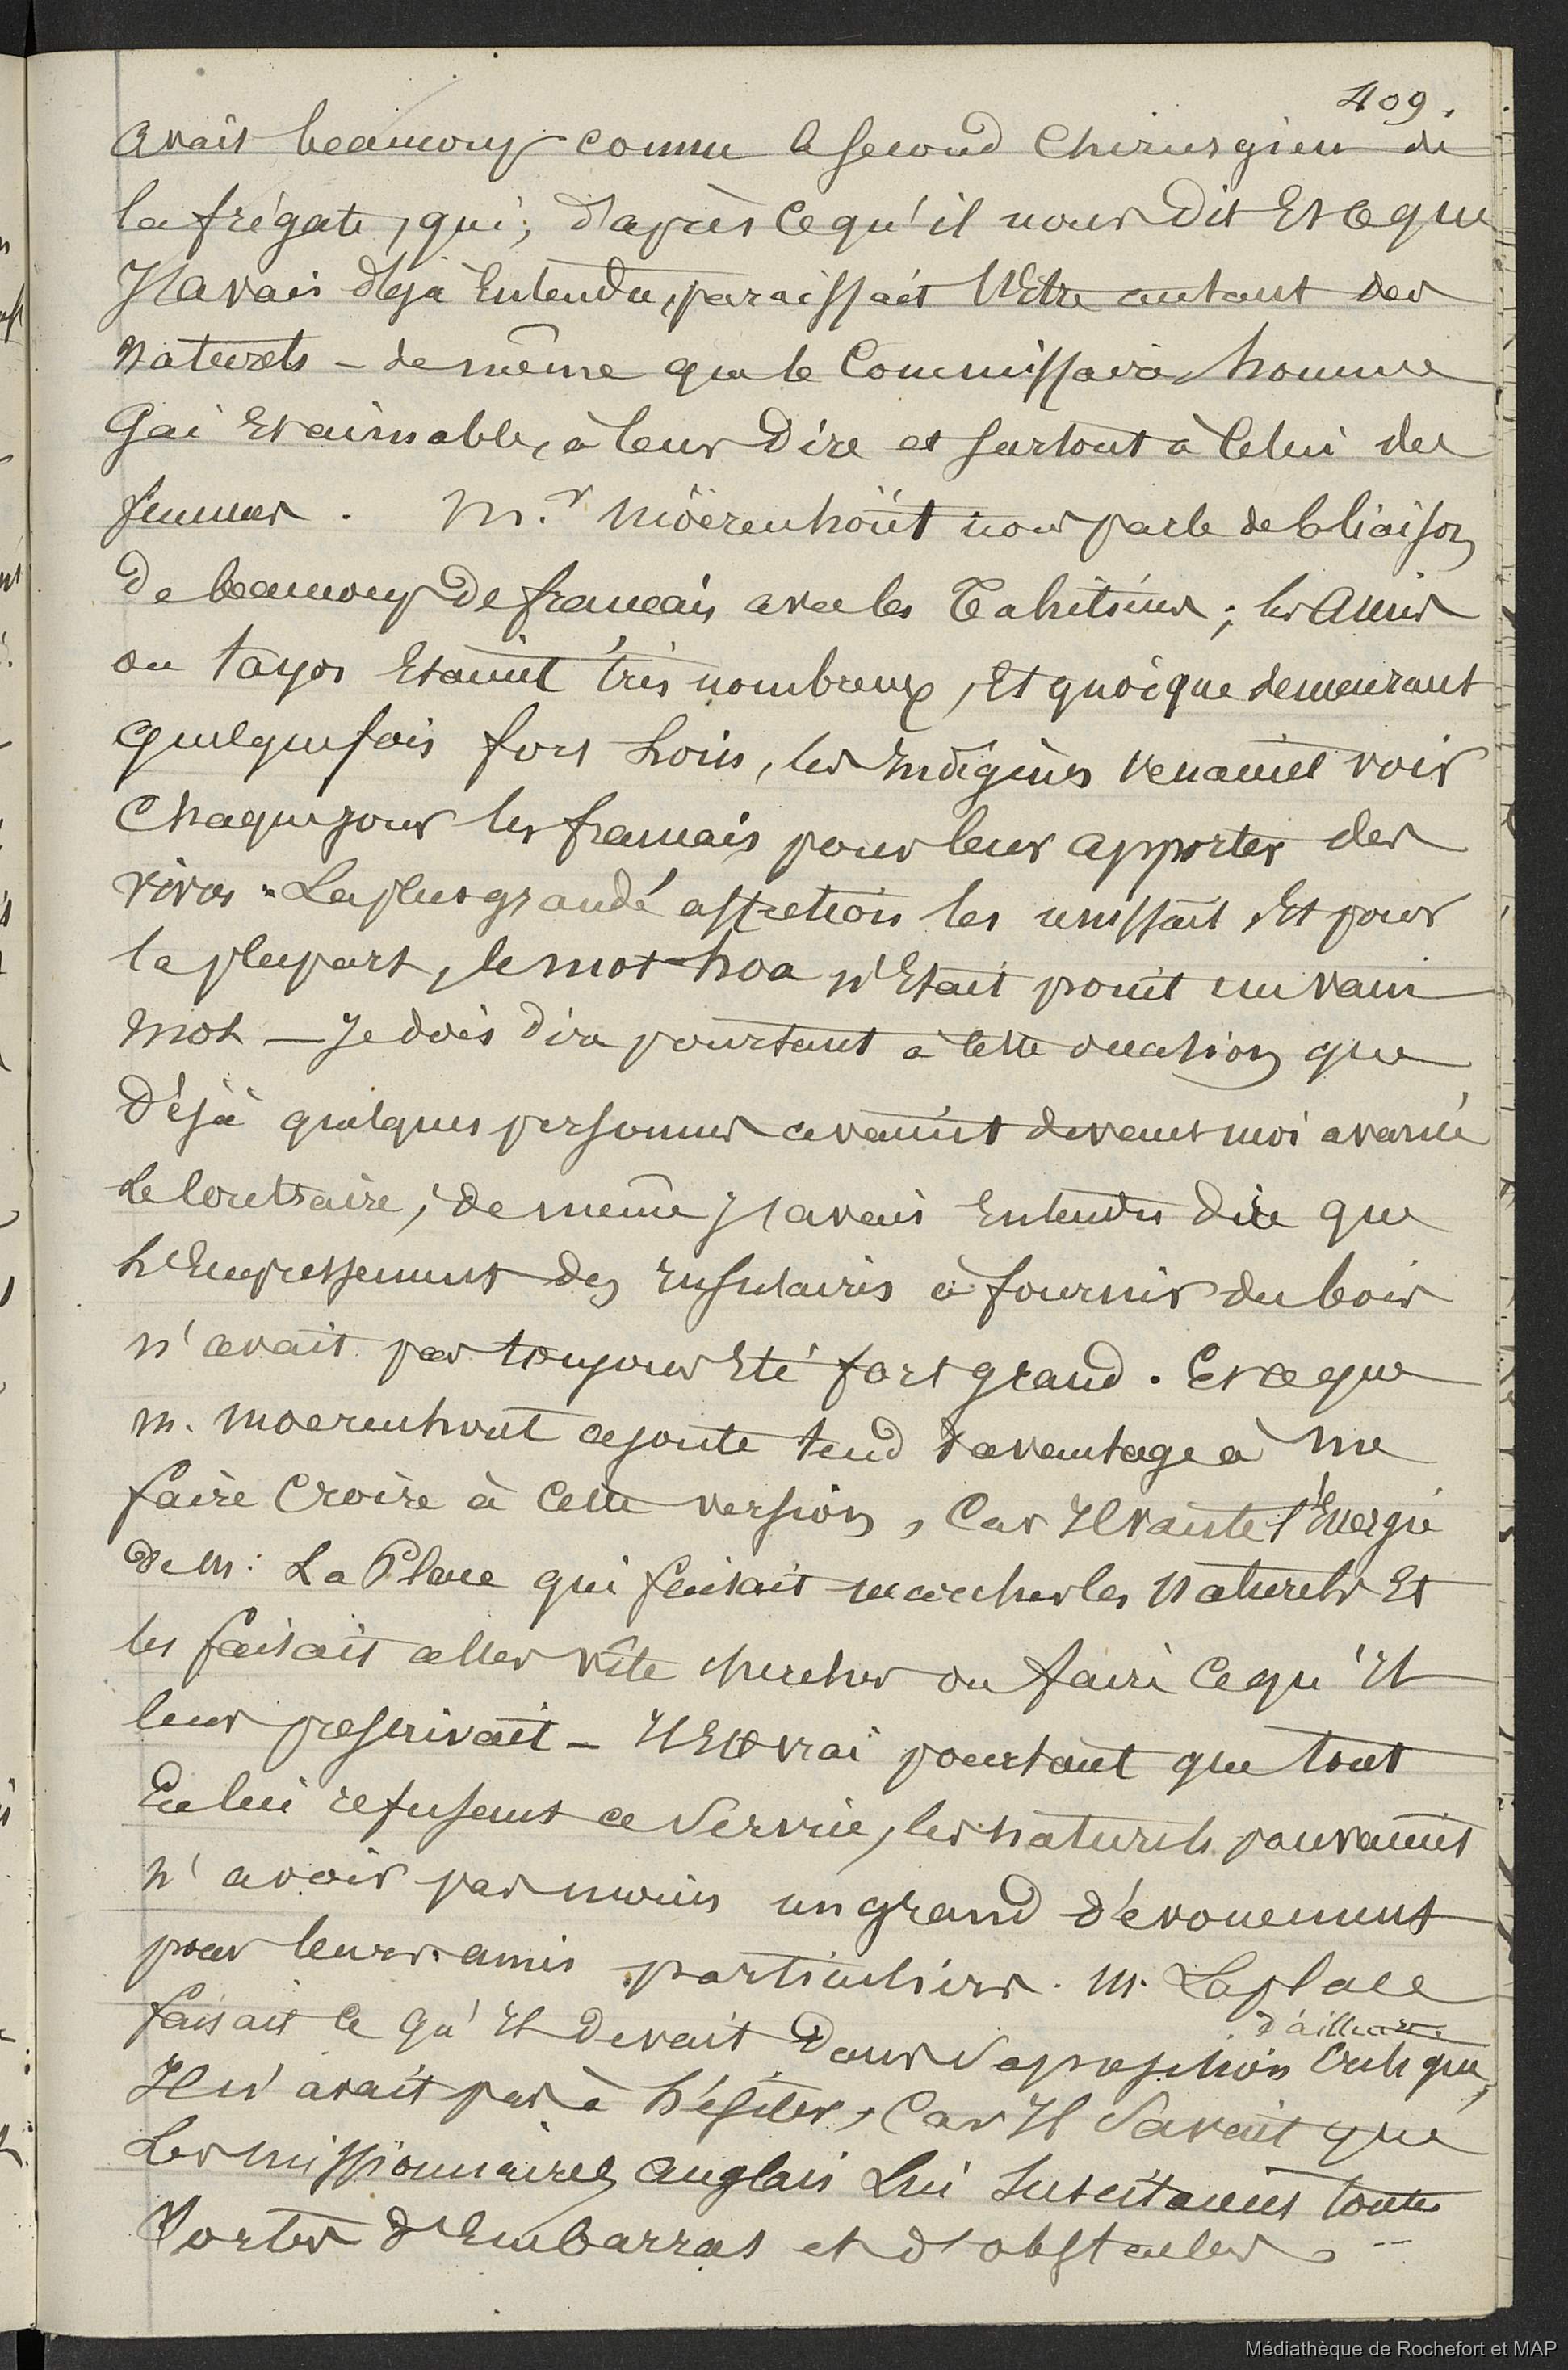 409.
avait beaucoup connu le second Chirurgien de
la frégate, qui, d'après ce qu'il nous dit Et ce que
J'avais déjà Entendu, paraissait l'Etre autant des
naturels - de même que le Commissaire, homme
Gai Et aimable, à leur dire et surtout à Celui des
femmes. M.r Möerenhoüt nous parle de la liaison
De beaucoup De francais avec les Tahitiens; les Amis
ou tayos Etaient très nombreux, Et quoique demeurant
Quelquefois fort Loin, les Indigènes venaient voir
Chaque jour les francais pour leur apporter des
vivres - La plus grande affection les unissait, Et pour
la plupart, le mot hoa n'Etait point un vain
mot — Je dois dire pourtant à cette occasion que
Déjà quelques personnes avaient devant moi avancé
Le Contraire; de même J'avais Entendu dire que
L'Empressement des Insulaires à fournir du bois
n'avait pas toujours Eté fort grand. Et ce que
M. Moerenhout ajoute tend davantage à me
faire Croire à cette version, Car Il vante l'Energie
de M. La Place qui faisait marcher les naturels Et
les faisait aller vite chercher ou faire ce qu'Il
leur prescrivait - Il Est vrai pourtant que tout
En lui refusant ce service, les naturels pouvaient
n'avoir pas moins un grand dévouement
pour leurs amis particuliers. M. Laplace
faisait ce qu'Il devait Dans sa position Critique,
d'ailleurs
Il n'avait pas à hésiter, Car Il savait que
Les missionnaires anglais Lui suscitaient toutes
Sortes d'Embarras et d'obstacles. --
Médiathèque de Rochefort et MAP